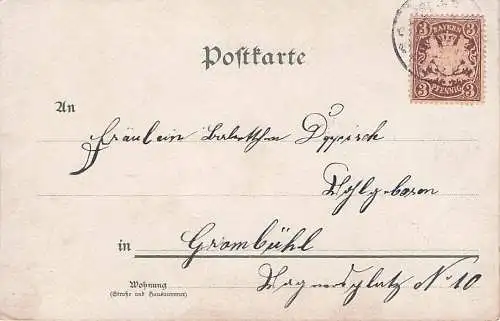 BAYERN
3 3
PFENNIG
3 3
Postkarte
An
Fräulein
Wohlgeboren
in Grombühl
Wagnersplatz No 10
Wohnung
(Straße und Hausnummer)